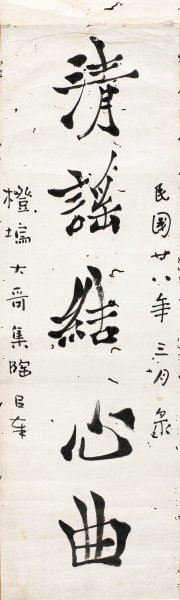 民國廿八年三月
清謠結心曲
橙 大哥集陶